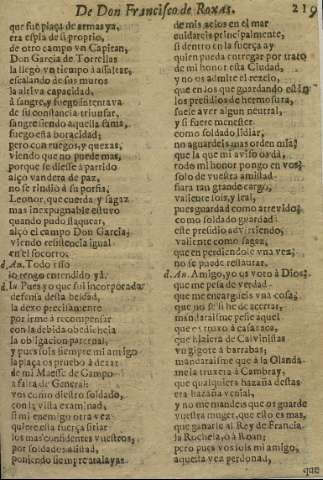 De Don Francisco de Roxas. 219
que fuè plaça de armas ya,
era espia de si proprio,
de otro campo vn Capitan,
Don Garcia de Torrellas
la llegò vn tiempo à assaltar,
escalando de sus muros
la altiva capacidad,
à sangre, y fuego intentava
de su constancia triunfar,
sangre siendo aquella fama,
fuego esta voracidad;
pero con ruegos, y quexas,
viendo que no puede mas,
porque se diesse à partido
alço vandera de paz,
no se rindiò à su porfia,
Leonor, que cuerda, y sagaz
mas inexpugnable estuvo
quando pudo flaquear,
alço el campo Don Garcia,
viendo resistencia igual
en el socorro.
d. An. Todo esso
io tengo entendido yà.
d. Lu Pues yo que fui incorporado
defensa desta beldad,
la dexo precisamente
por irme à recompensar
con la debida obediencia
la obligacion paternal,
y pues sois siempre mi amigo
la plaça os pruebo à dexar
de mi Maesse de Campo
à falta de General:
vos como diestro soldado,
con la vista examinad,
si mi enemigo otra vez
quiere essa fuerça sitiar
los mas confidentes vuestros,
por soldadesalidad,
poniendo siempre atalayas
de mis zelos en el mar
cuidareis principalmente,
si dentro en la fuerça ay
quien pueda entregar por trato
de mi honor esta Ciudad,
y no os admire el rezelo,
que en los que guardando estàn
los presidios de hermosura,
suele aver algun neutral,
y si fuere menester
como soldado lidiar,
no aguardeis mas orden mia
que la que mi aviso os dà,
todo mi honor pongo en vos,
solo de vuestra amistad
fiara tan grande cargo,
valiente sois, y leal,
pues guardad como arrevido,
como soldado guardad
este presidio advirtiendo,
valiente como sagaz,
que en perdiendole vna vez,
no se puede restaurar.
d. An. Amigo, yo os voto à Dios,
que me pesa de verdad
que me encargueis vna cosa,
que no sè si he de acertar,
mandaraisme pesie aquel
que es truxo à casaraca,
que hiziera de Calvinistas
vn gigote à barrabas;
mandaraisme que à la Olanda
me la truxera à Cambray,
que qualquiera hazaña destas
era hazaña venial,
y no me mandeis que os guarde
vuestra muger, que esso es mas,
que ganarle al Rey de Francia
la Rochela, ò à Roàn;
pero pues vos sois mi amigo,
aquesta vez perdonad,
que